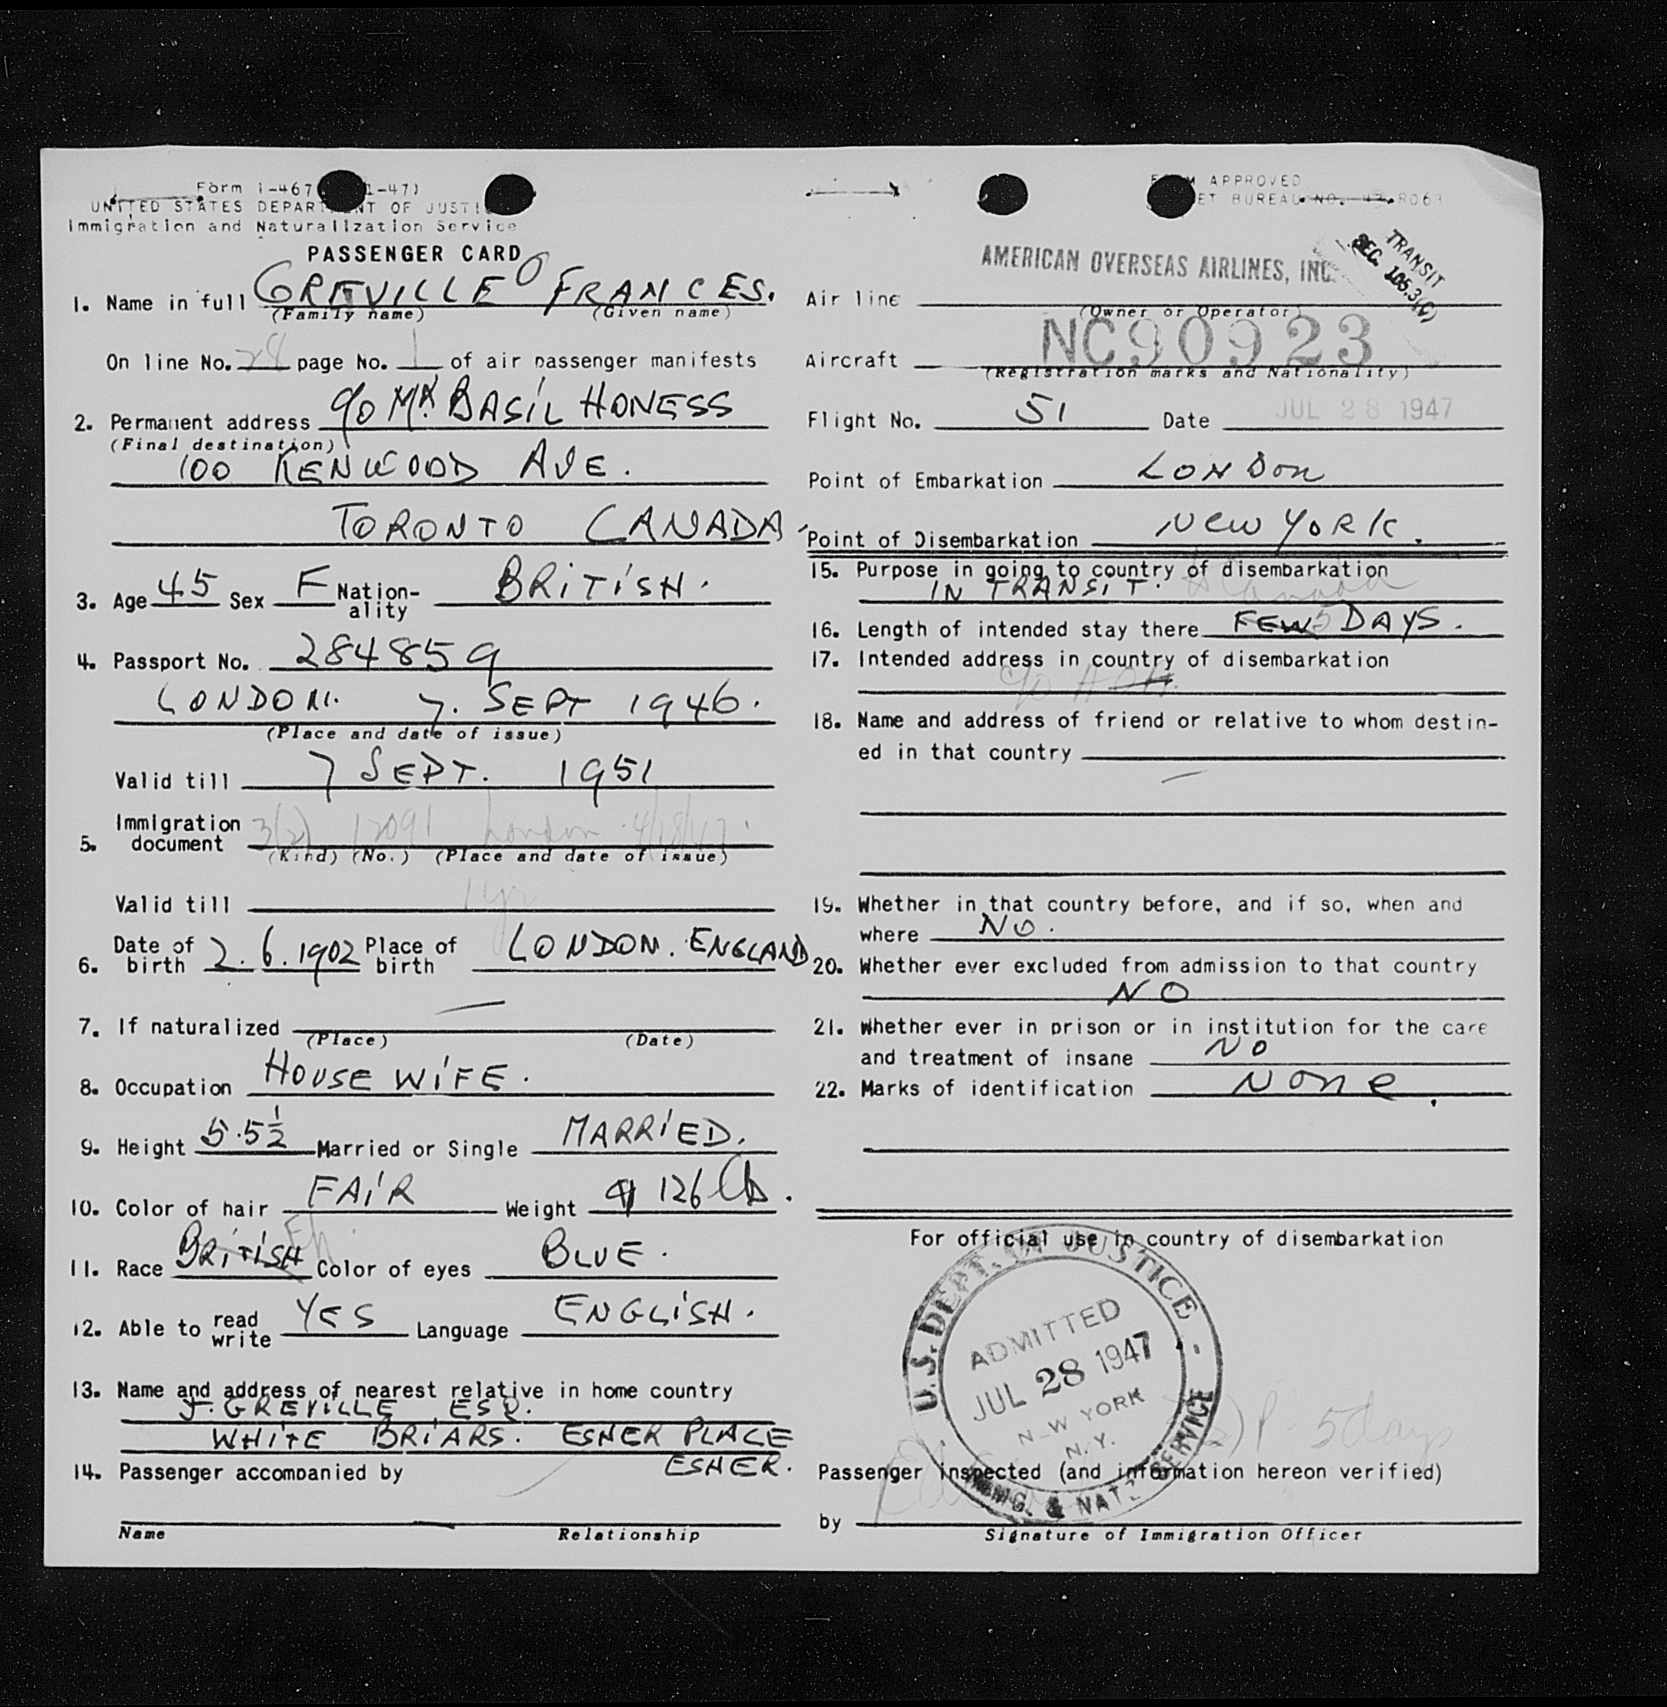 Form I-467 1-47)
UNITED STATES DEPARTMENT OF JUSTI
Immigration and Naturalization Service
PASSENGER CARD
1. Name in full GREVILLE FRANCES.
(Family name) (Given name)
On line No. 28 page No. 1 of air passenger manifests
2. Permanent address c/o MR. BASIL HONESS
(Final destination)
100 KENWOOD AVE.
TORONTO CANADA
3. Age 45 Sex F Nation-ality BRITISH.
4. Passport No. 284859
LONDON. 7. SEPT 1946.
(Place and date of issue)
Valid till 7 SEPT. 1951
5. Immigration document 3(2) 12091 London 4/18/47
(Kind) (No.) (Place and date of issue)
Valid till 1 yr
6. Date of birth 2.6.1902 Place of birth LONDON. ENGLAND
7. If naturalized —
(Place) (Date)
8. Occupation HOUSE WIFE.
9. Height 5.5½ Married or Single MARRIED.
10. Color of hair FAIR Weight 126 lb.
11. Race BRITISH Eh Color of eyes BLUE.
12. Able to read write YES Language ENGLISH.
13. Name and address of nearest relative in home country
J. GREVILLE ESQ.
WHITE BRIARS. ESHER PLACE
ESHER.
14. Passenger accompanied by
Name Relationship
APPROVED
ET BUREAU NO. 43-R068
TRANSIT
SEC. 105.3(C)
AMERICAN OVERSEAS AIRLINES, INC.
Air line
(Owner or Operator)
Aircraft NC90923
(Registration marks and Nationality)
Flight No. 51 Date JUL 28 1947
Point of Embarkation LONDON
Point of Disembarkation NEW YORK.
15. Purpose in going to country of disembarkation
IN TRANSIT. Canada
16. Length of intended stay there FEW 5 DAYS.
17. Intended address in country of disembarkation
c/o AOA
18. Name and address of friend or relative to whom destin-
ed in that country
—
19. Whether in that country before, and if so, when and
where NO.
20. Whether ever excluded from admission to that country
NO
21. Whether ever in prison or in institution for the care
and treatment of insane NO
22. Marks of identification None.
For official use in country of disembarkation
U.S. DEPT. OF JUSTICE - IMMG. & NATZ SERVICE
ADMITTED
JUL 28 1947
N-W YORK
N.Y.
P - 5 days
Passenger inspected (and information hereon verified)
by
Signature of Immigration Officer